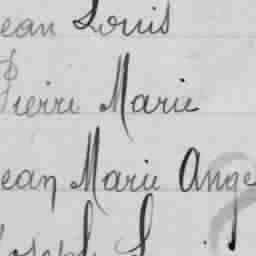 ean Louis
Pierre Marie
ean Marie Ange
Joseph